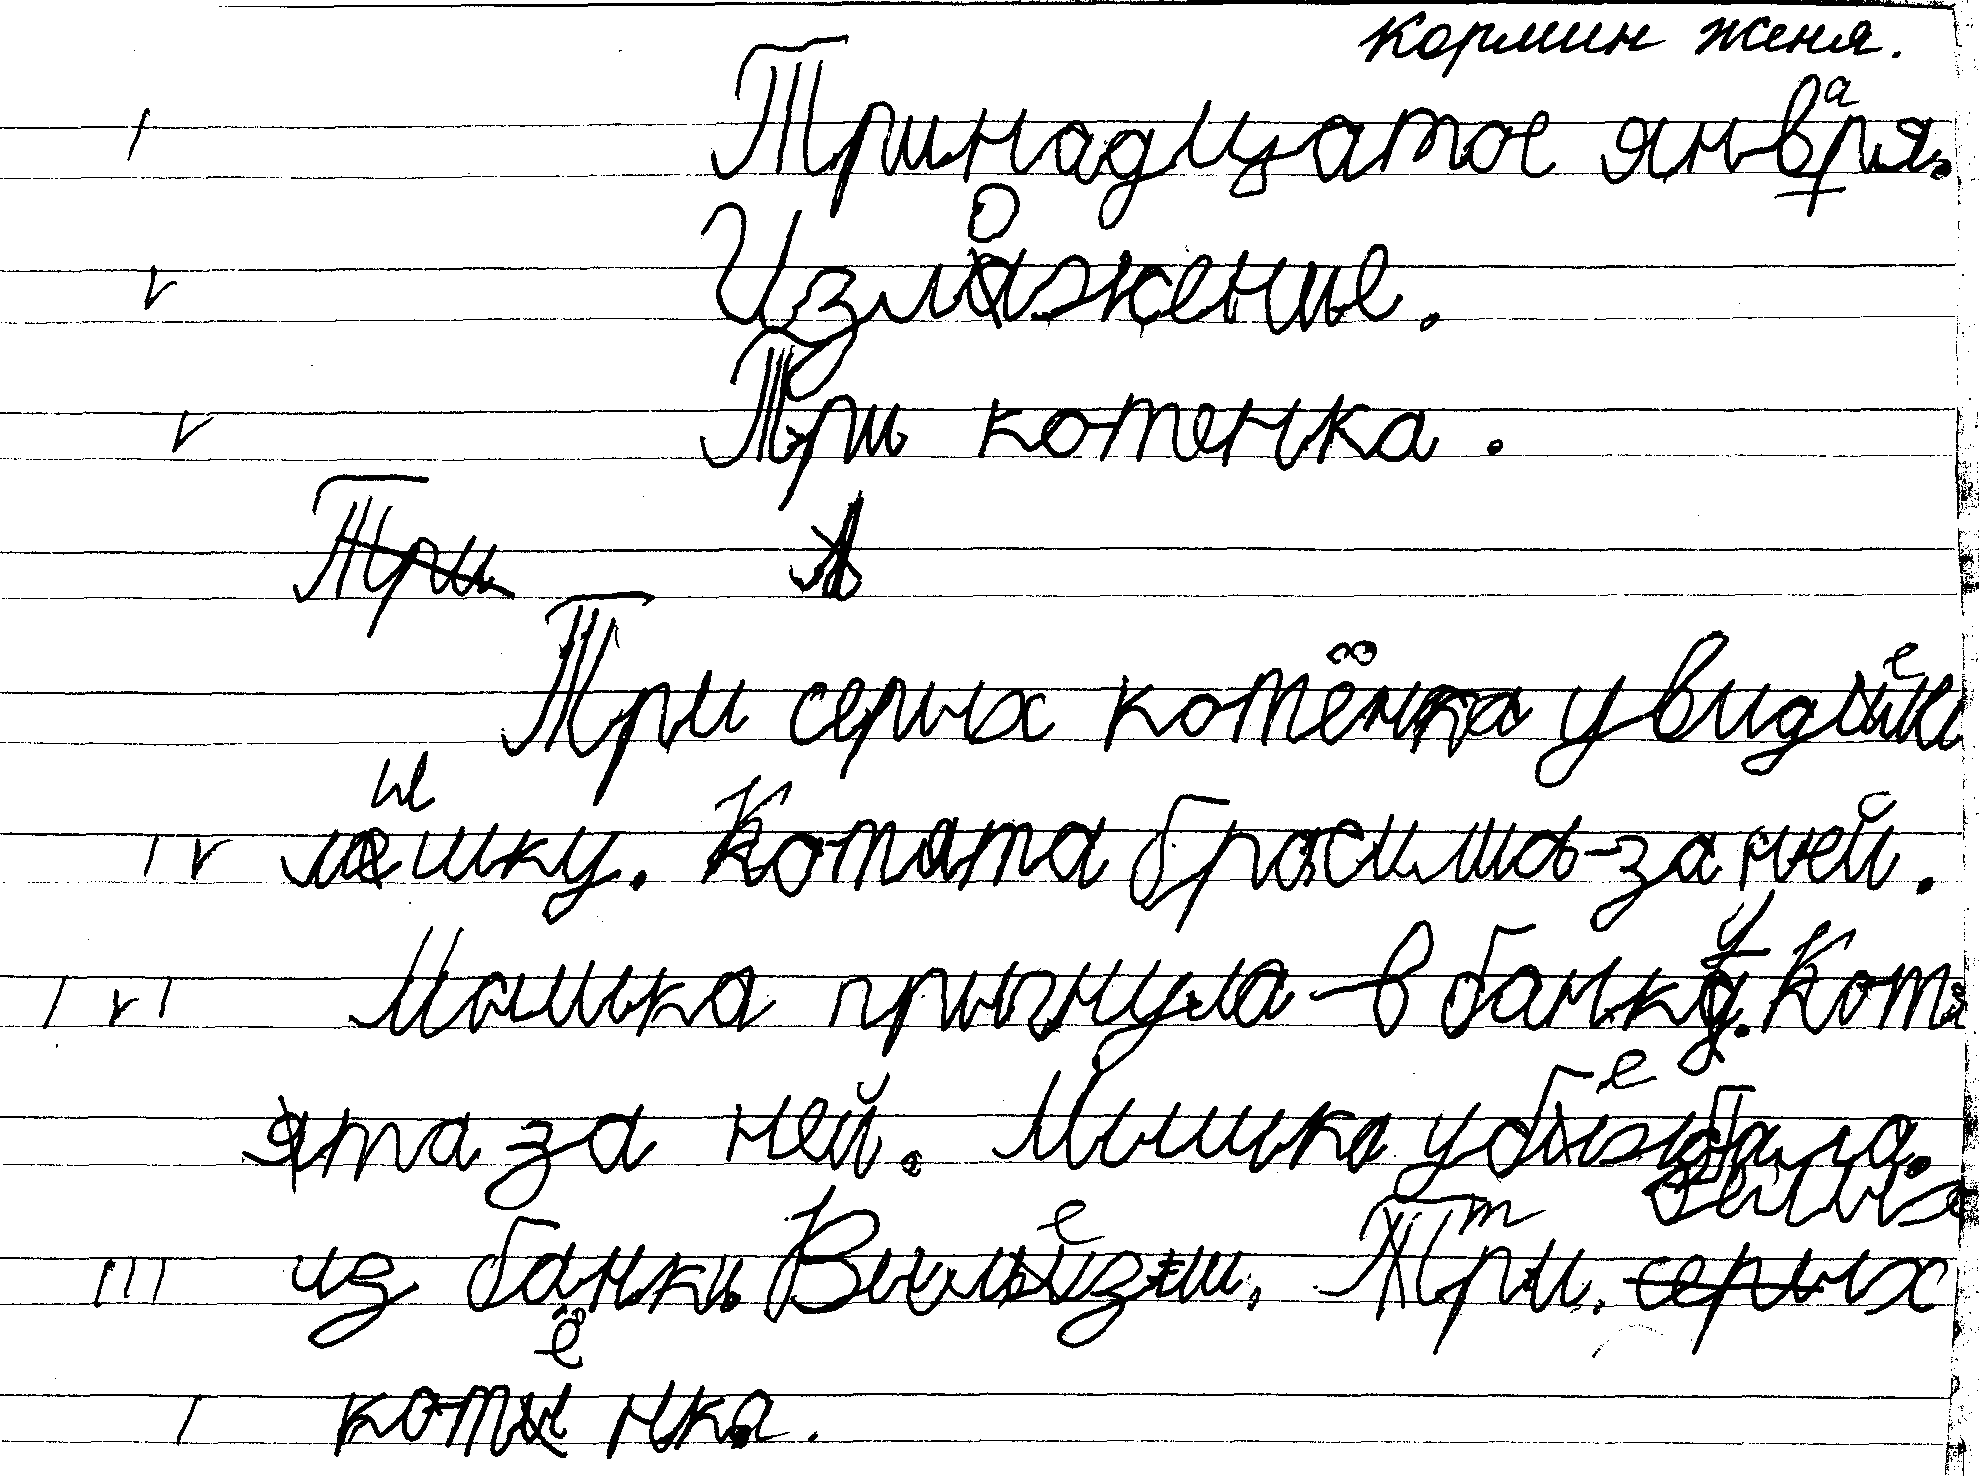 Кормин Женя.
Тринадцатое января.
Изложение.
Три котенка.
Три
Три серых котёнка увидели
мышку. Котята бросились за ней.
Мышка прыгнула в банку. Кот
ята за ней. Мышка убежала.
из банки Вылезли. Три. белых серых
котёнка.